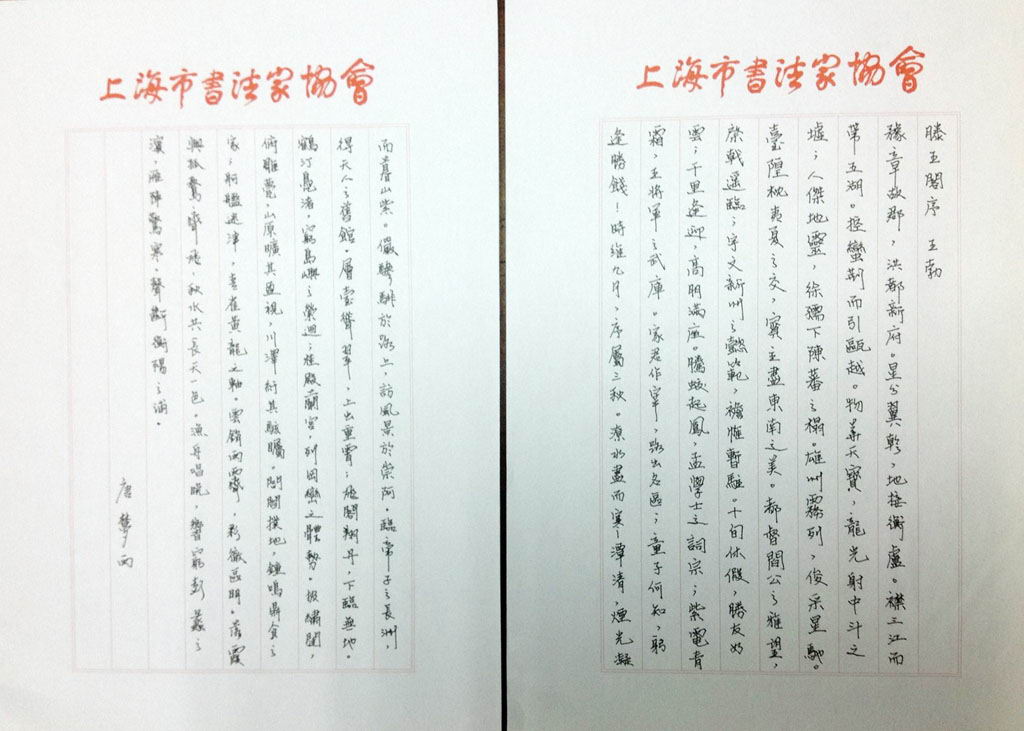 上海市書法家協會
滕王閣序 王勃
豫章故郡，洪都新府。星分翼軫，地接衡廬。襟三江而
帶五湖。控蠻荊而引甌越。物華天寶，龍光射牛斗之
墟；人傑地靈，徐孺下陳蕃之榻。雄州霧列，俊采星馳。
臺隍枕夷夏之交，賓主盡東南之美。都督閻公之雅望，
棨戟遥臨；宇文新州之懿範，襜帷暫駐。十旬休假，勝友如
雲；千里逢迎，高朋滿座。騰蛟起鳳，孟學士之詞宗；紫電青
霜，王將軍之武庫。家君作宰，路出名區；童子何知，躬
逢勝餞！時維九月，序屬三秋。潦水盡而寒潭清，煙光凝
上海市書法家協會
而暮山紫。儼驂騑於路上，訪風景於崇阿。臨帝子之長洲，
得天人之舊館。層臺聳翠，上出重霄；飛閣翔丹，下臨無地。
鶴汀鳧渚，窮島嶼之縈迴；桂殿蘭宮，列岡巒之體勢。披繡闥，
俯雕甍，山原曠其盈視，川澤紆其駭矚。閭閻撲地，鐘鳴鼎食之
家；舸艦迷津，青雀黃龍之軸。雲銷雨霽，彩徹區明。落霞
與孤鶩齊飛，秋水共長天一色。漁舟唱晚，響窮彭蠡之
濱，雁陣驚寒，聲斷衡陽之浦。
唐夢雨